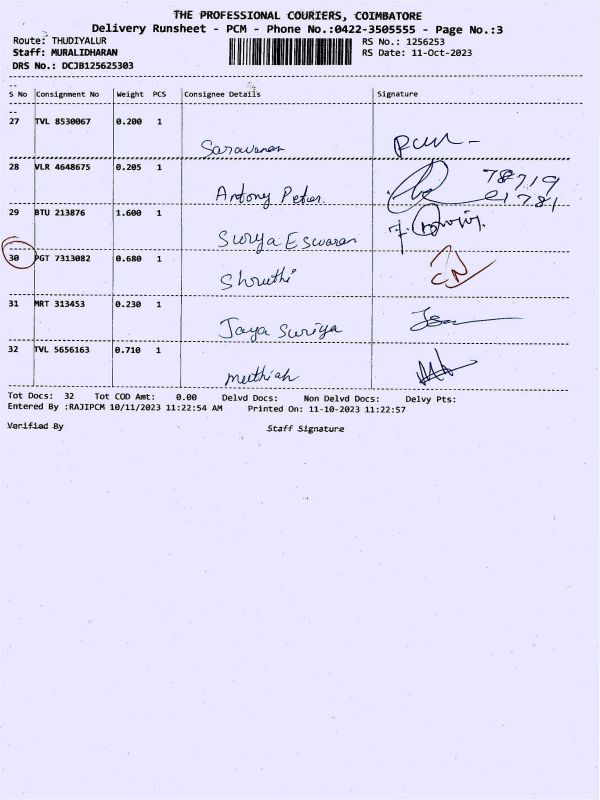 THE PROFESSIONAL COURIERS, COIMBATORE
Delivery Runsheet - PCM - Phone No.:0422-3505555 - Page No.:3
Route: THUDIYALUR RS No.: 1256253
Staff: MURALIDHARAN RS Date: 11-Oct-2023
DRS No.: DCJB125625303
S No Consignment No Weight PCS Consignee Details Signature
27 TVL 8530067 0.200 1
Saravanan
28 VLR 4648675 0.205 1
Antony Peter. 78719
81781
29 BTU 213876 1.600 1
Surya Eswaran
30 PGT 7313082 0.680 1
Shruthi
31 MRT 313453 0.230 1
Jaya Suriya
32 TVL 5656163 0.710 1
Muthiah
Tot Docs: 32 Tot COD Amt: 0.00 Delvd Docs: Non Delvd Docs: Delvy Pts:
Entered By :RAJIPCM 10/11/2023 11:22:54 AM Printed On: 11-10-2023 11:22:57
Verified By Staff Signature